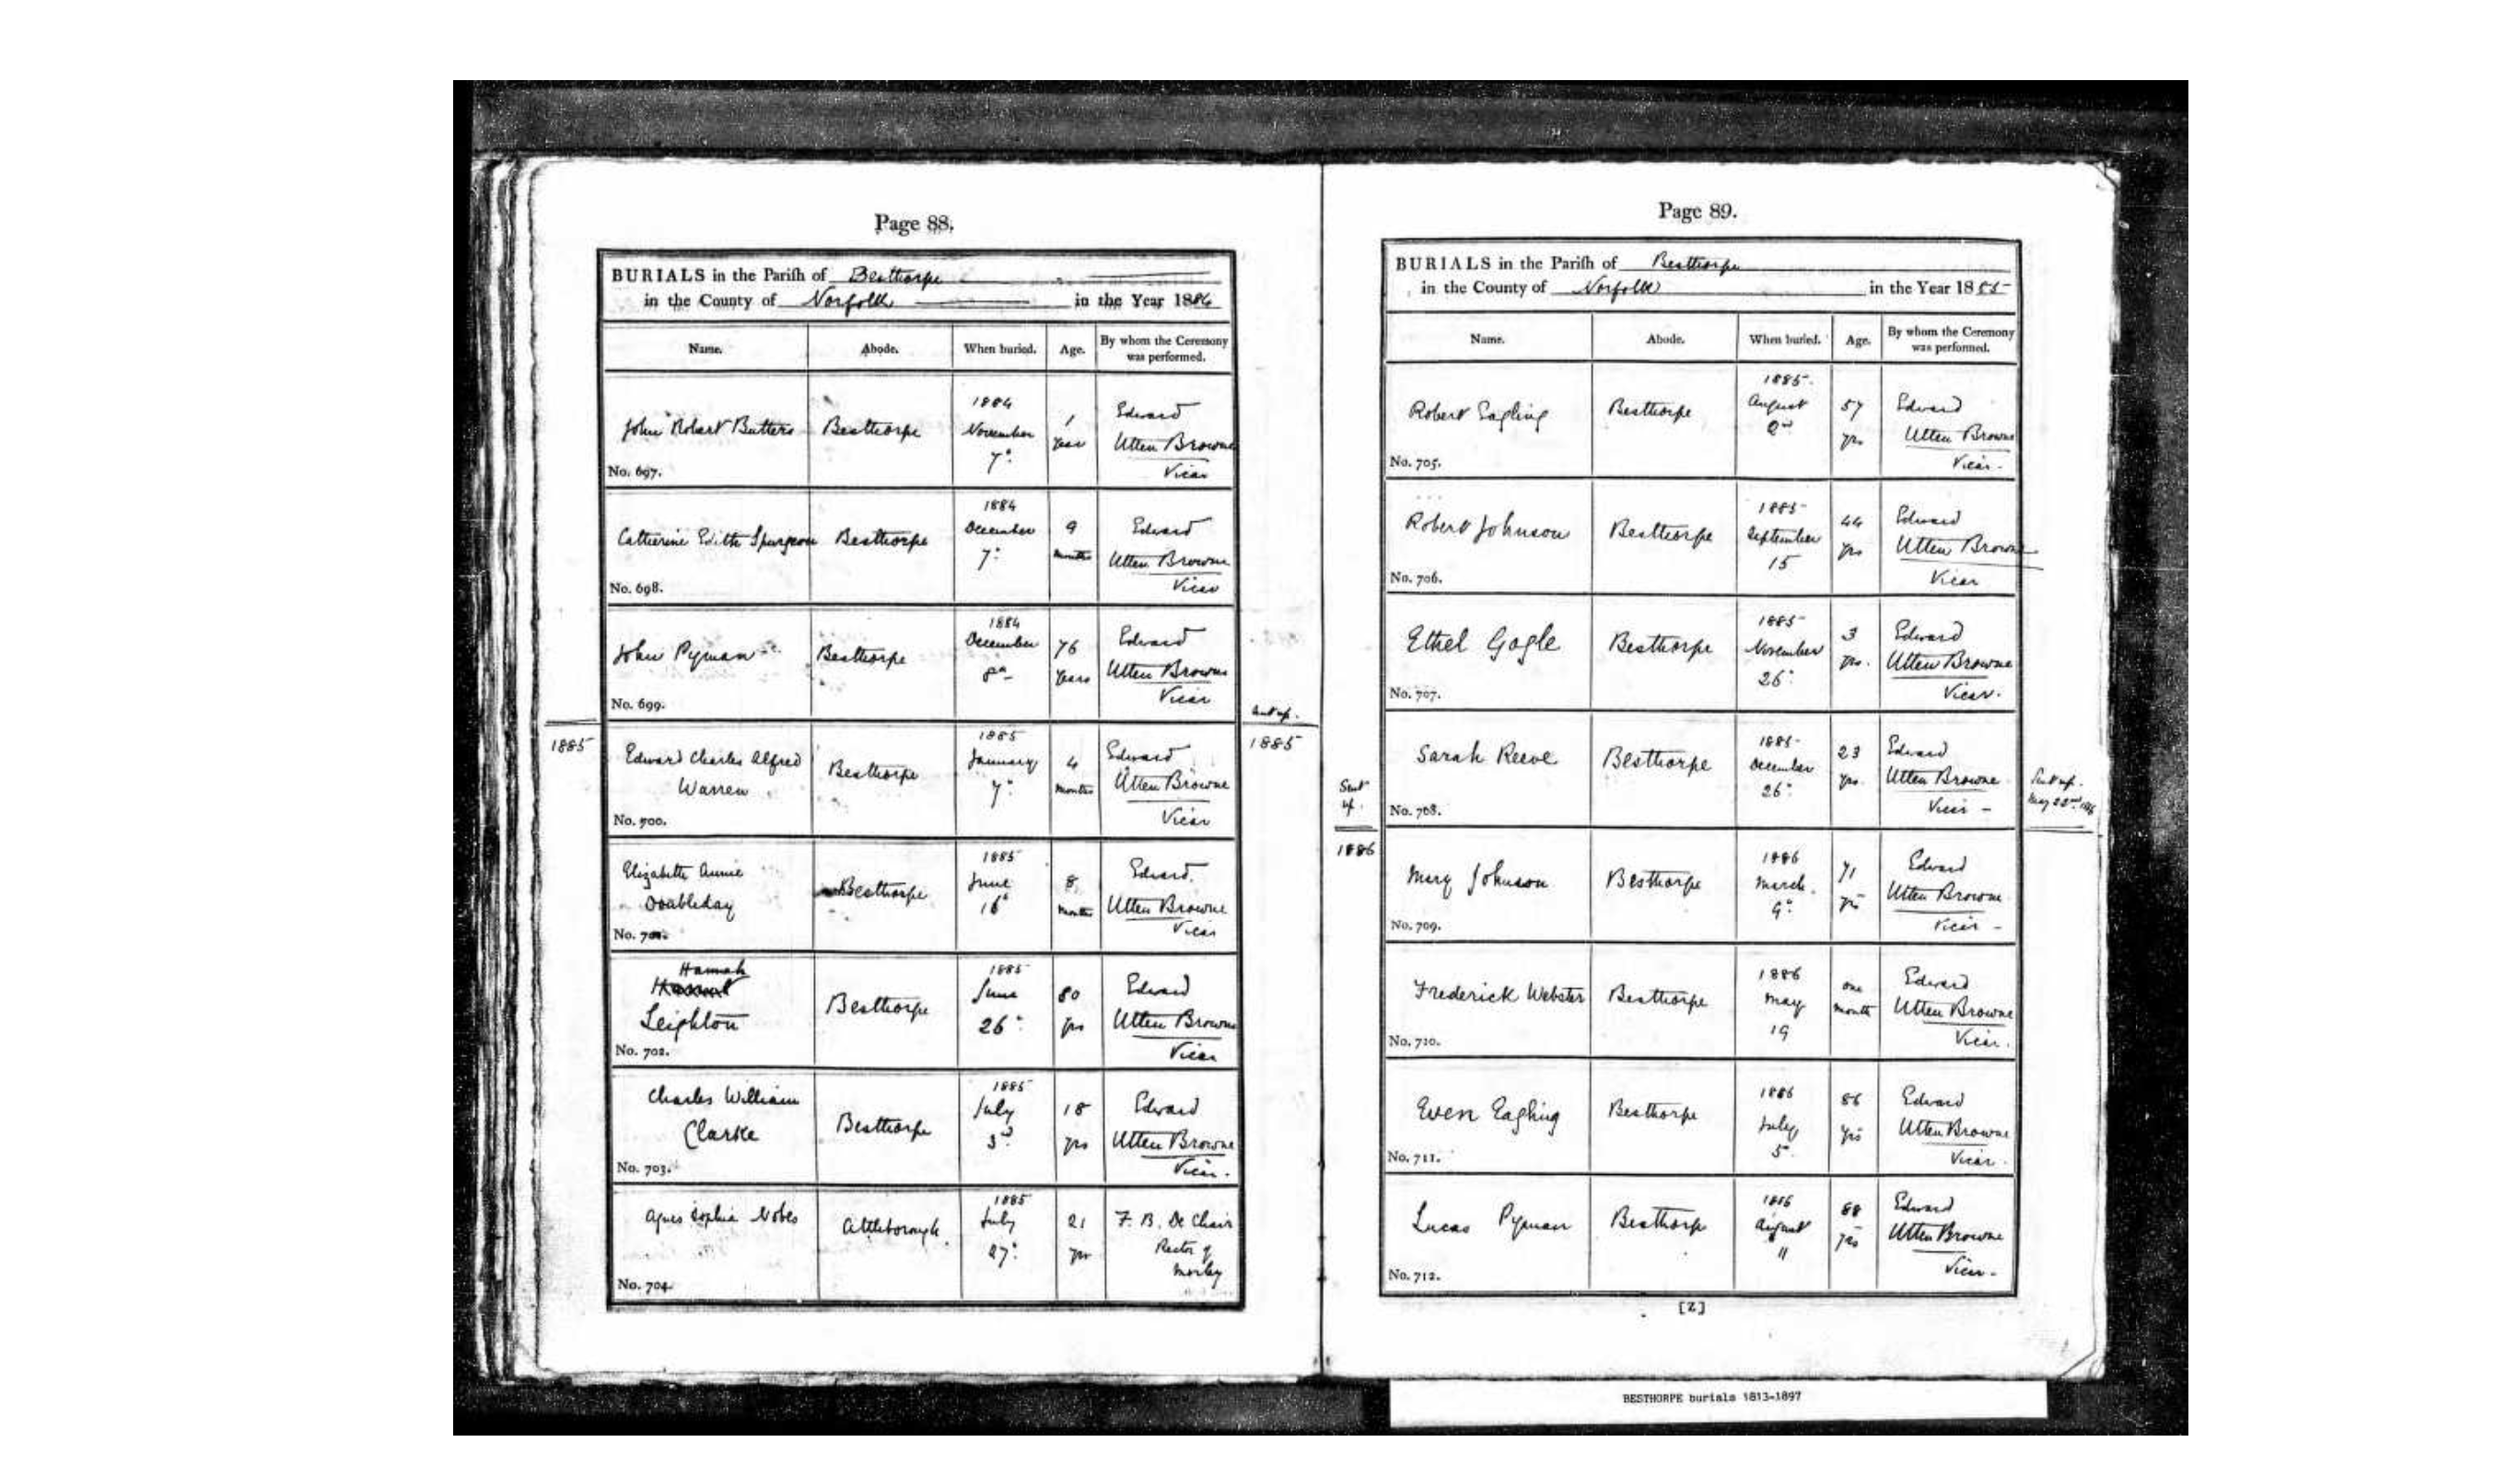 Page 88.
BURIALS in the Parish of Besthorpe
in the County of Norfolk in the Year 1884
Name. Abode. When buried. Age. By whom the Ceremony was performed.
John Robert Butters Besthorpe 1884 November 7th 1 Year Edward Utten Browne Vicar
No. 697.
Catherine Edith Spurgeon Besthorpe 1884 December 7th 9 months Edward Utten Browne Vicar
No. 698.
John Pyman Besthorpe 1884 December 8th 76 Years Edward Utten Browne Vicar
No. 699.
Sent up.
1885 1885
Edward Charles Alfred Warren Besthorpe 1885 January 7th 4 months Edward Utten Browne Vicar
No. 700.
Elizabeth Annie Doubleday Besthorpe 1885 June 16th 8 months Edward Utten Browne Vicar
No. 701.
Hannah Leighton Besthorpe 1885 June 26th 80 yrs Edward Utten Browne Vicar
No. 702.
Charles William Clarke Besthorpe 1885 July 3rd 18 yrs Edward Utten Browne Vicar.
No. 703.
Agnes Sophia Nobes Attleborough. 1885 July 27th 21 yrs F. B. De Chair Rector of Morley
No. 704.
Page 89.
BURIALS in the Parish of Besthorpe
in the County of Norfolk in the Year 1885
Name. Abode. When buried. Age. By whom the Ceremony was performed.
Robert Eagling Besthorpe 1885 August 2nd 57 yrs Edward Utten Browne Vicar.
No. 705.
Robert Johnson Besthorpe 1885 September 15 44 yrs Edward Utten Browne Vicar
No. 706.
Ethel Gogle Besthorpe 1885 November 26th 3 yrs. Edward Utten Browne Vicar.
No. 707.
Sarah Reeve Besthorpe 1885 December 26th 23 yrs. Edward Utten Browne Vicar
No. 708.
Sent up.
Sent up. May 22nd 1886
1886
Mary Johnson Besthorpe 1886 March 9th 71 yrs Edward Utten Browne Vicar
No. 709.
Frederick Webster Besthorpe 1886 May 19 one month Edward Utten Browne Vicar.
No. 710.
Even Eagling Besthorpe 1886 July 5th 86 yrs Edward Utten Browne Vicar.
No. 711.
Lucas Pyman Besthorpe 1886 August 11 88 yrs Edward Utten Browne Vicar.
No. 712.
[Z]
BESTHORPE burials 1813-1897